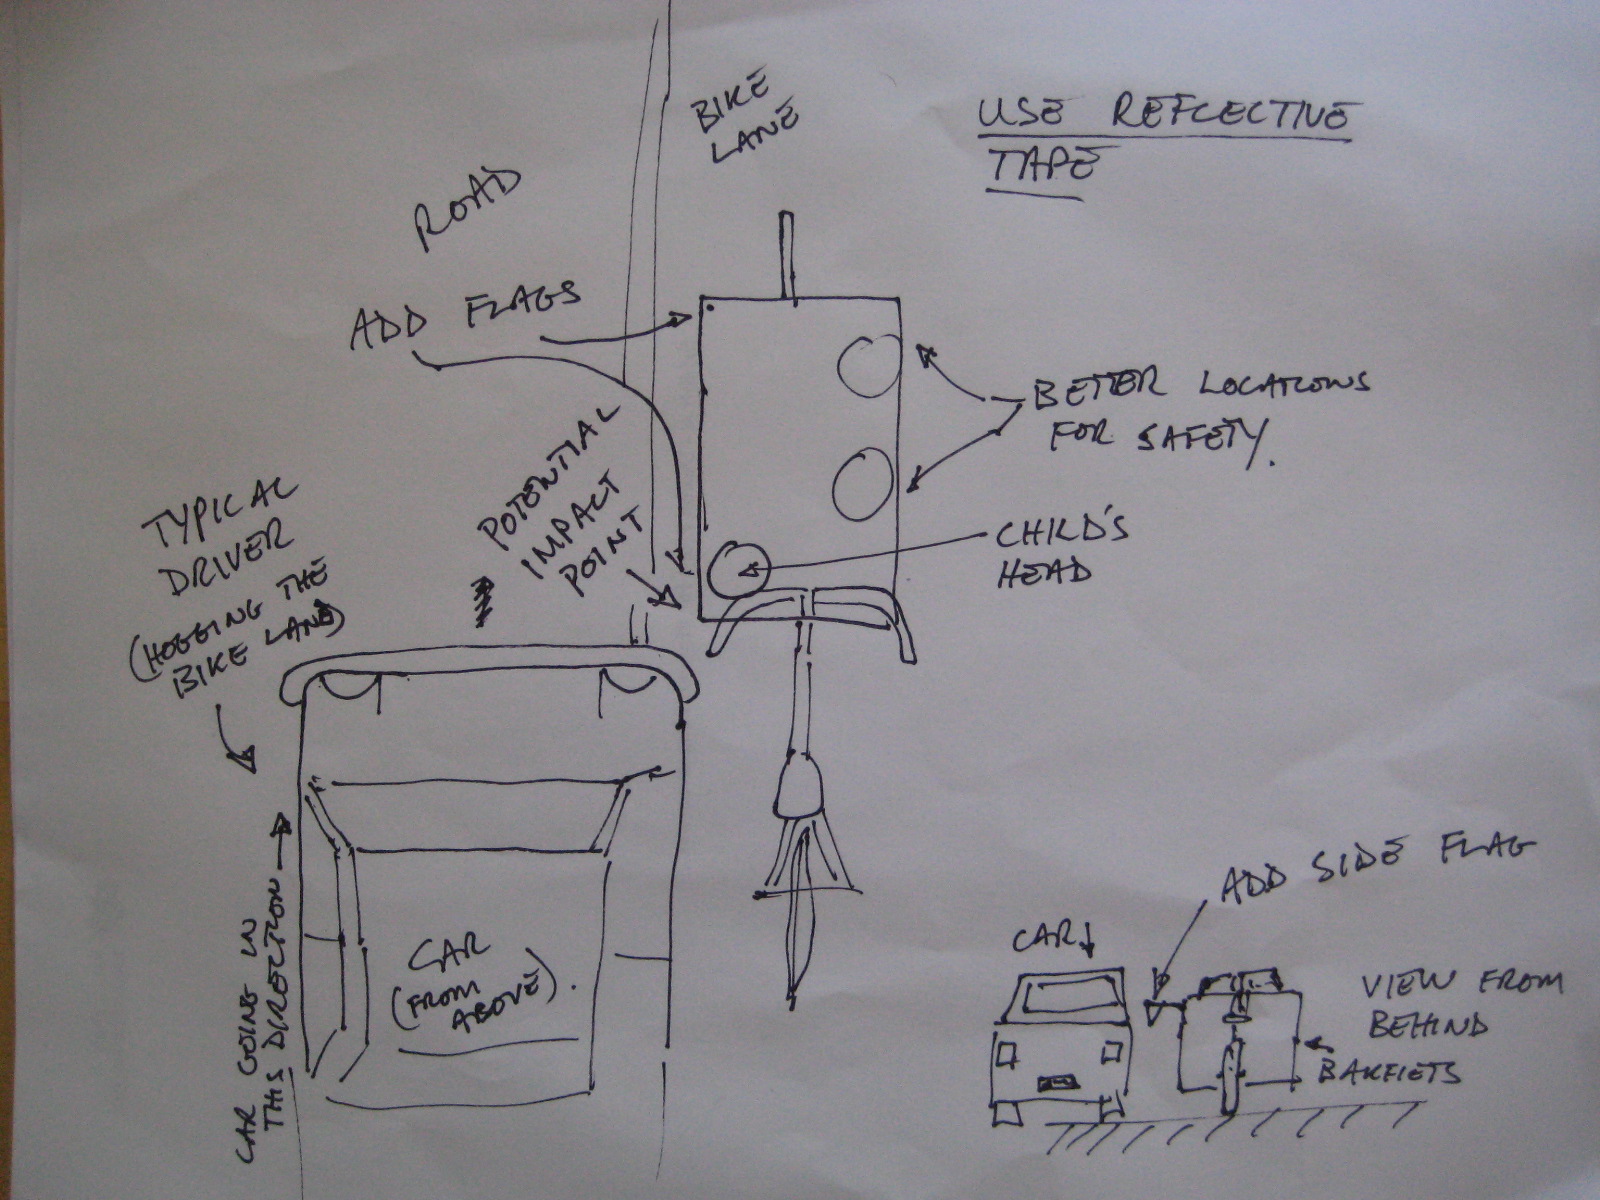 BIKE
LANE
USE REFLECTIVE
TAPE
ROAD
ADD FLAGS
BETTER LOCATIONS
FOR SAFETY.
POTENTIAL
IMPACT
POINT
TYPICAL
DRIVER
(HOGGING THE
BIKE LANE)
CHILD'S
HEAD
CAR GOING IN
THIS DIRECTION
CAR
(FROM
ABOVE).
ADD SIDE FLAG
CAR
VIEW FROM
BEHIND
BAKFIETS